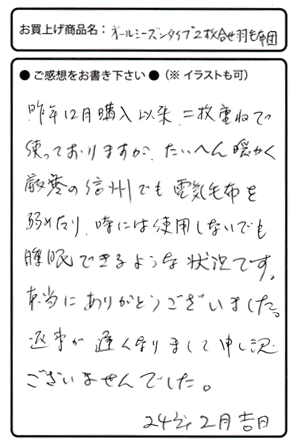 お買上げ商品名:オールシーズンタイプ2枚合せ羽毛布団
● ご感想をお書き下さい ●(※ イラストも可)
昨年12月購入以来、二枚重ねで
使っておりますが、たいへん暖かく
厳寒の信州でも電気毛布を
弱めたり、時には使用しないでも
睡眠できるような状況です。
本当にありがとうございました。
返事が遅くなりまして申し訳
ございませんでした。
24年2月吉日